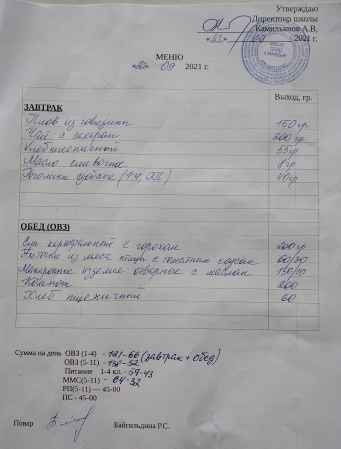 Утверждаю
Директор школы
Камильянов А.В,
2021 г.
МЕНЮ
09 2021 г.
Выход, гр.
ЗАВТРАК
Плов из говядины 150 гр
Чай с сахаром 200 гр
Хлеб пшеничный 55 гр
Масло сливочное 8 гр
(1-4, ЭП) 40 гр
ОБЕД (ОВЗ)
Суп картофельный с горохом 200 гр
Биточки из мяса птицы с томатным соусом 60/30
Макаронные изделие отварные с маслом 150/10
Компот 200
Хлеб пшеничный 60
Сумма на день ОВЗ (1-4) - 121-66 (завтрак + обед)
ОВЗ (5-11) - 138-52
Питание 1-4 кл. - 57-43
ММС(5-11) - 64-32
РП(5-11) — 45-00
ПС - 45-00
Повар Байгильдина Р.С.